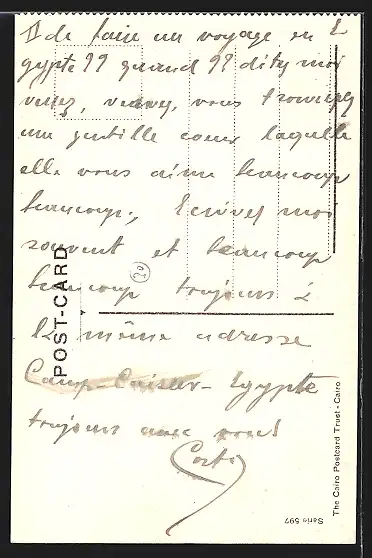 II de faire un voyage en E
gypte ?? quand ?? dites moi
venez, venez, vous trouverez
une gentille coeur laquelle
elle vous aime beaucoup
beaucoup., Ecrivez moi
souvent et beaucoup
beaucoup toujours à
la même adresse
Camp-Caisar-Egypte
toujours avec vous!
POST-CARD
20
The Cairo Postcard Trust - Cairo
Serie 597